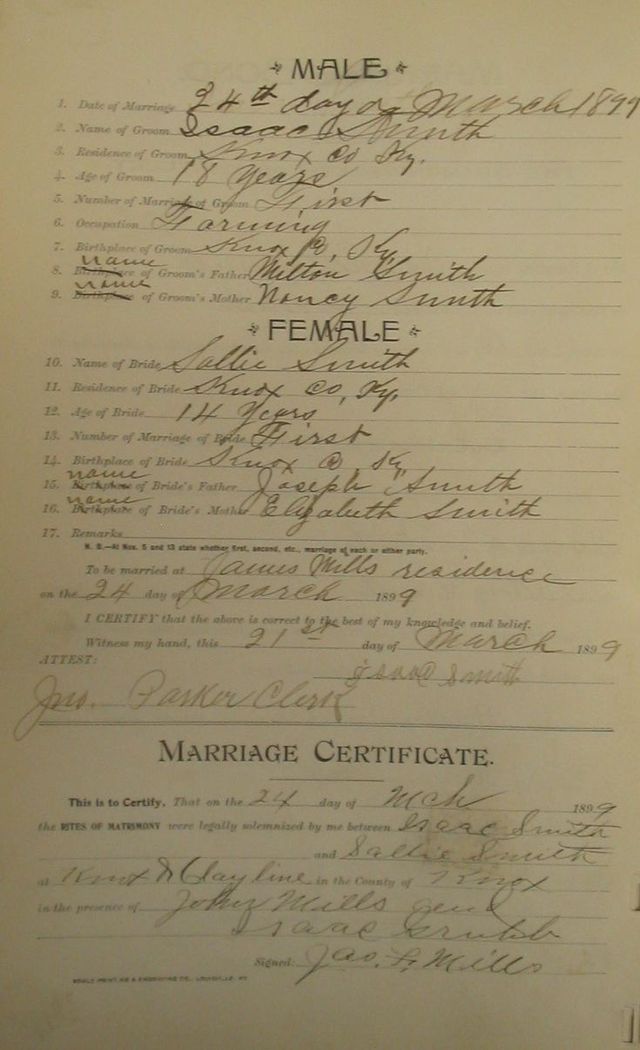 MALE
1. Date of Marriage 24th day of March 1899
2. Name of Groom Isaac Smith
3. Residence of Groom Knox Co Ky.
4. Age of Groom 18 Years
5. Number of Marriage of Groom First
6. Occupation Farming
7. Birthplace of Groom Knox Co, Ky
name
8. Birthplace of Groom's Father Milton Smith
name
9. Birthplace of Groom's Mother Nancy Smith
FEMALE
10. Name of Bride Sallie Smith
11. Residence of Bride Knox Co, Ky.
12. Age of Bride 14 Years
13. Number of Marriage of Bride First
14. Birthplace of Bride Knox Co Ky
name
15. Birthplace of Bride's Father Joseph Smith
name
16. Birthplace of Bride's Mother Elizabeth Smith
17. Remarks
N. B.—At Nos. 5 and 13 state whether first, second, etc., marriage of each or either party.
To be married at James Mills residence
on the 24 day of March 1899
I CERTIFY that the above is correct to the best of my knowledge and belief.
Witness my hand, this 21st day of March 1899
ATTEST:
Isaac Smith
Jno. Parker Clerk
MARRIAGE CERTIFICATE.
This is to Certify, That on the 24 day of Mch 1899
the RITES OF MATRIMONY were legally solemnized by me between Isaac Smith
and Sallie Smith
at Knox & Clay line in the County of Knox
in the presence of John Mills and
Isaac Grubb
Signed: Jas. F. Mills